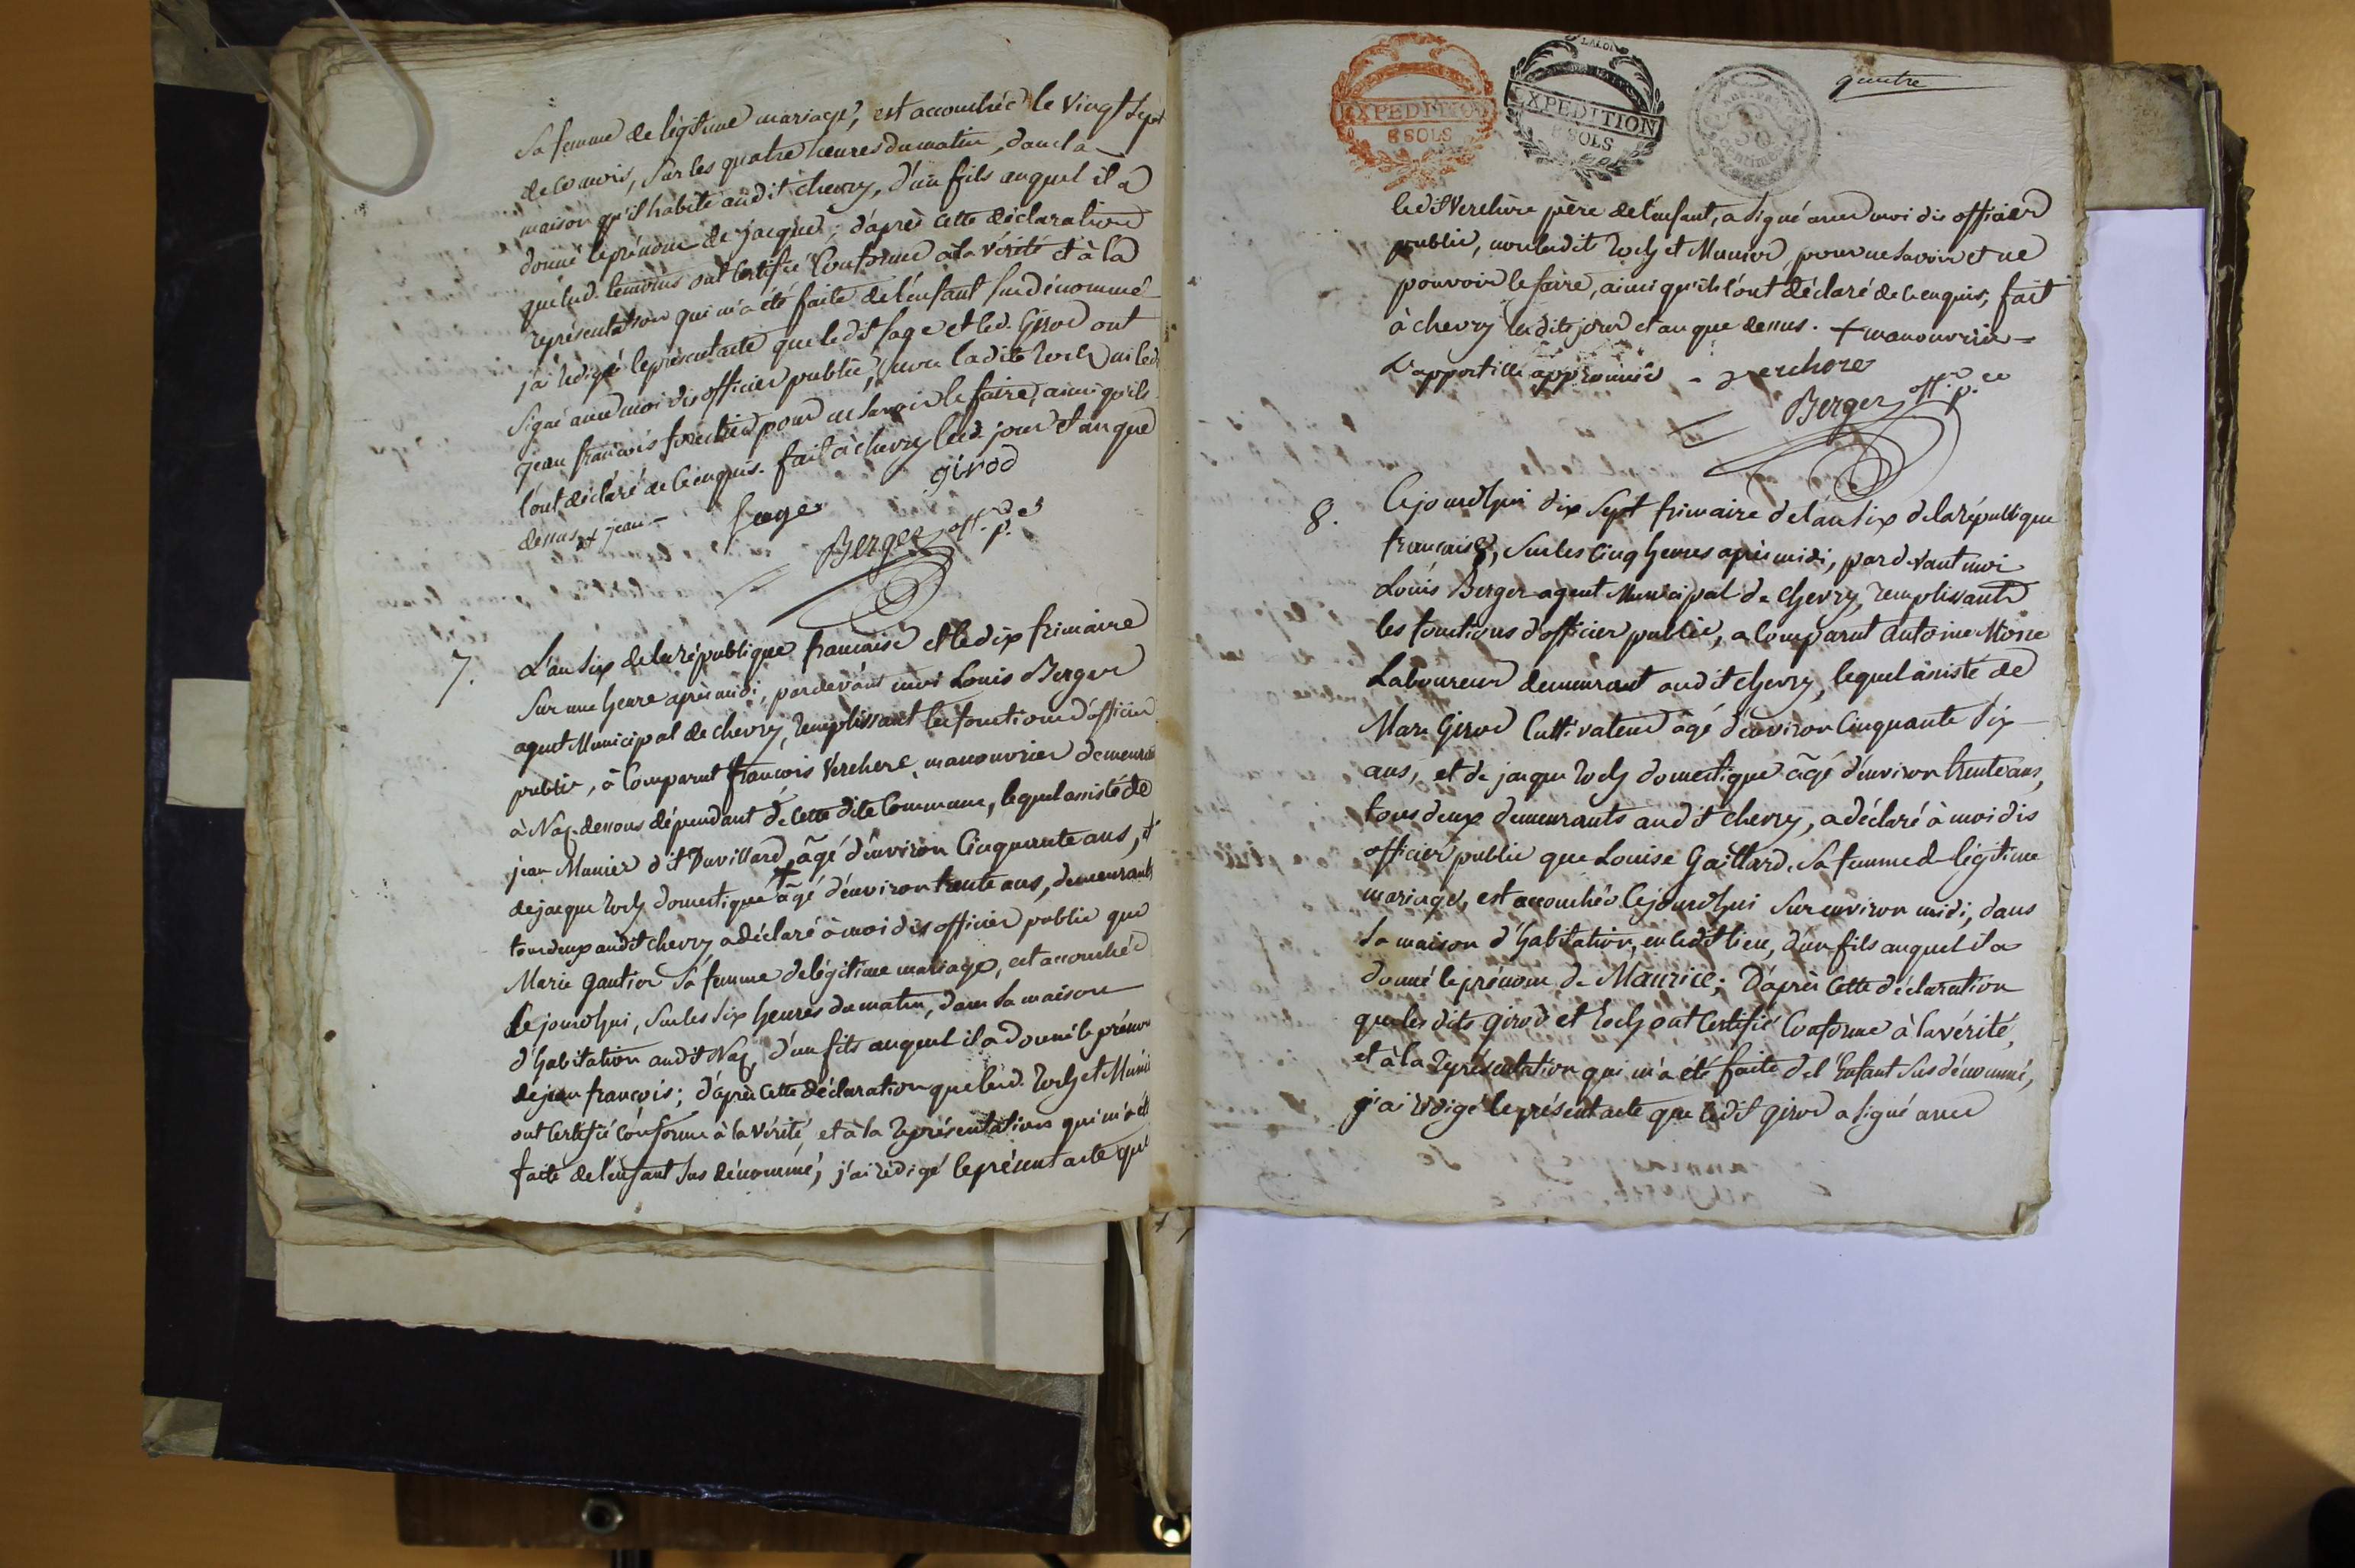 Sa femme de légitime mariage, est accouchée le vingt sept
de ce mois, sur les quatre heures du matin, dans la
maison qu'il habite audit chevry, d'un fils auquel il a
donné le prénom de jacque; d'après cette déclaration
que lesd. temoins ont certifié conforme à la vérité et à la
représentation qui m'a été faite de l'enfant susdénommé
j'ai rédigé le présent acte que ledit sage et led. Girod ont
signé avec moi dis officier public, non ladite Roch ni led.
jean françois fouchier pour ne savoir le faire, ainsi qu'ils
l'ont déclaré de ce enquis. fait à chevry lesd. jour et an que
dessus + jean - sage girod
Berger off. p.
7. L'an six de la république française et le dix frimaire
Sur une heure après midi, pardevant moi Louis Berger
agent Municipal de chevry, remplissant les fonctions d'officier
public, à comparut françois Verchere, manouvrier demeurant
à Naz dessous dépendant de cette dite Commune, lequel assisté de
jean Munier dit Duvillard, âgé d'environ Cinquante ans, et
de jacque Roch domestique + âgé d'environ trente ans, demeurants
tous deux audit chevry, a déclaré à moi dis officier public que
Marie Gautier sa femme de légitime mariage, est accouchée
Ce jourdhui, sur les six heures du matin, dans sa maison
d'habitation audit Naz, d'un fils auquel il a donné le prénom
de jean françois; d'après cette déclaration que lesd. Roch et Munier
ont Certifié conforme à la Vérité, et à la représentation qui m'a été
faite de l'enfant sus dénommé, j'ai rédigé le présent acte que
quatre
EXPEDITION
8 SOLS
LA LOI
EXPEDITION
8 SOLS
50
centimes
ledit Verchère père de l'enfant, a signé avec moi dis officier
public, non lesdit Roch et Munier, pour ne savoir et ne
pouvoir le faire, ainsi qu'ils l'ont déclaré de ce enquis; fait
à chevry lesdits jour et an que dessus. + manouvrier -
L'appostille approuvée - verchere
Berger off. p.
8. Cejourdhui dix sept frimaire de l'an six de la république
française, sur les cinq heures après midi, pardevant moi
Louis Berger agent Municipal de chevry, remplissant
les fonctions d'officier public, a Comparut Antoine Mosse
Laboureur demeurant audit chevry, lequel assisté de
Marc Girod Cultivateur âgé d'environ Cinquante six
ans, et de jacque Roch domestique âgé d'environ trente ans,
tous deux demeurants audit chevry, a déclaré à moi dis
officier public que Louise Gaillard, sa femme de légitime
mariage, est accouchée Cejourdhui sur environ midi, dans
sa maison d'habitation, en ledit lieu, d'un fils auquel il a
donné le prénom de Maurice; D'après cette déclaration
que les dits girod et Roch ont certifié Conforme à la vérité,
et à la représentation qui m'a été faite de l'Enfant sus dénommé,
j'ai rédigé le présent acte que ledit girod a signé avec